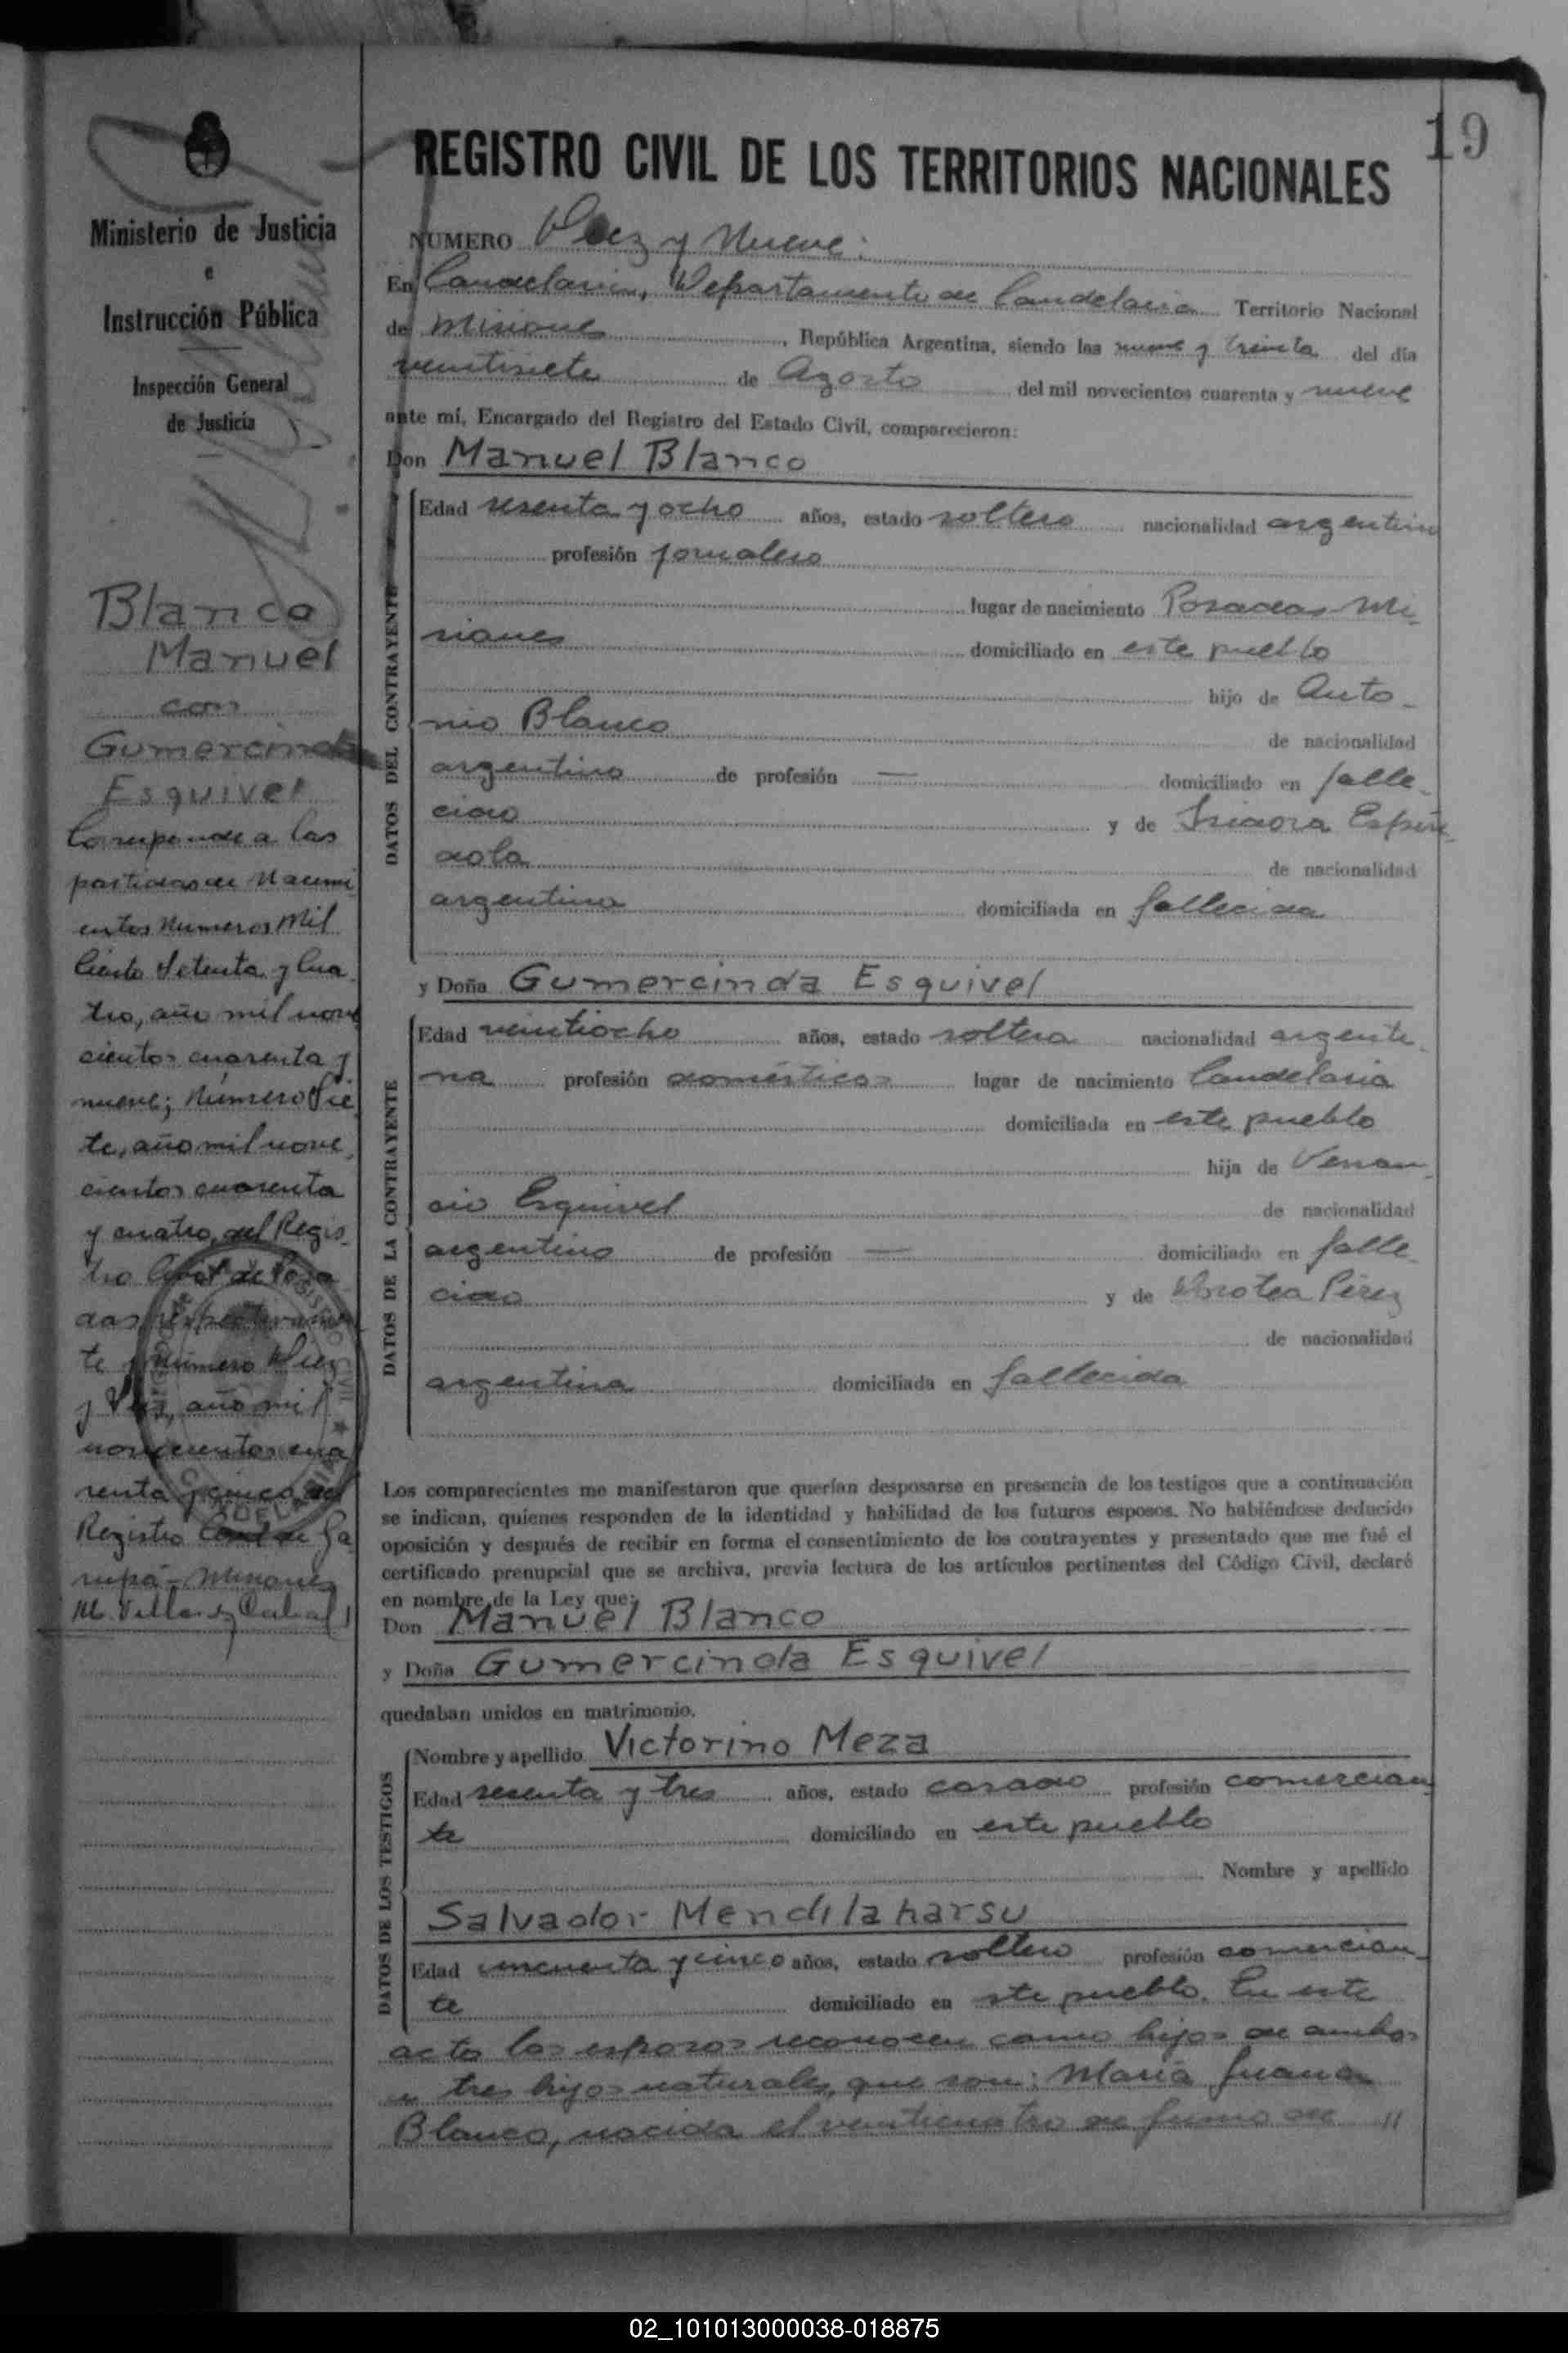 19
REGISTRO CIVIL DE LOS TERRITORIOS NACIONALES
Ministerio de Justicia
e
Instrucción Pública
Inspección General
de Justicia
NUMERO Diez y Nueve:
En Candelaria, Departamento de Candelaria Territorio Nacional
de Misiones, República Argentina, siendo las nueve y treinta del día
veintisiete de Agosto del mil novecientos cuarenta y nueve
ante mí, Encargado del Registro del Estado Civil, comparecieron:
Don Manuel Blanco
DATOS DEL CONTRAYENTE
Edad sesenta y ocho años, estado soltero nacionalidad argentino
profesión jornalero
lugar de nacimiento Posadas Mi-
siones domiciliado en este pueblo
hijo de Anto-
nio Blanco de nacionalidad
argentino de profesión — domiciliado en falle-
cido y de Isidora Espín-
dola de nacionalidad
argentina domiciliada en fallecida
y Doña Gumercinda Esquivel
DATOS DE LA CONTRAYENTE
Edad veintiocho años, estado soltera nacionalidad argenti-
na profesión domésticos lugar de nacimiento Candelaria
domiciliada en este pueblo
hija de Venan-
cio Esquivel de nacionalidad
argentino de profesión — domiciliado en falle-
cido y de Dorotea Pérez
de nacionalidad
argentina domiciliada en fallecida
Los comparecientes me manifestaron que querían desposarse en presencia de los testigos que a continuación
se indican, quienes responden de la identidad y habilidad de los futuros esposos. No habiéndose deducido
oposición y después de recibir en forma el consentimiento de los contrayentes y presentado que me fué el
certificado prenupcial que se archiva, previa lectura de los artículos pertinentes del Código Civil, declaré
en nombre de la Ley que:
Don Manuel Blanco
y Doña Gumercinda Esquivel
quedaban unidos en matrimonio.
DATOS DE LOS TESTIGOS
Nombre y apellido Victorino Meza
Edad sesenta y tres años, estado casado profesión comercian-
te domiciliado en este pueblo
Nombre y apellido
Salvador Mendilaharsu
Edad cincuenta y cinco años, estado soltero profesión comercian-
te domiciliado en este pueblo. En este
acto los esposos reconocen como hijos de ambos
a tres hijos naturales, que son: María Juana
Blanco, nacida el veinticuatro de Junio de //
Blanco
Manuel
con
Gumercinda
Esquivel
Corresponde a las
partidas de Nacimi
entos Numeros Mil
Ciento Setenta y Cua
tro, año mil nove
cientos cuarenta y
nueve; Número Sie
te, año mil nove,
cientos cuarenta
y cuatro, del Regis-
tro Civil de Posa
das respectivamen
te y Número Diez
y Seis, año mil
novecientos cua
renta y cinco del
Registro Civil de Ga
rupá - Misiones
02_101013000038-018875